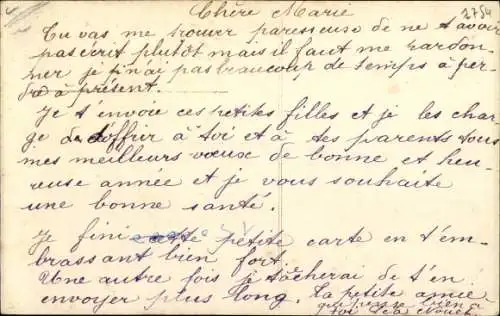 Chère Marie
2754
Tu vas me trouver paresseuse de ne t'avoir
pas écrit plutôt mais il faut me pardon-
ner je n'ai pas beaucoup de temps à per-
dre à présent.
Je t'envoie ces petites filles et je les char-
ge de t'offrir à toi et à tes parents tous
mes meilleurs vœux de bonne et heu-
reuse année et je vous souhaite
une bonne santé.
Je fini cette petite carte en t'em-
brassant bien fort.
Une autre fois je tâcherai de t'en
envoyer plus long. Ta petite amie
qui pense bien à
toi Léa